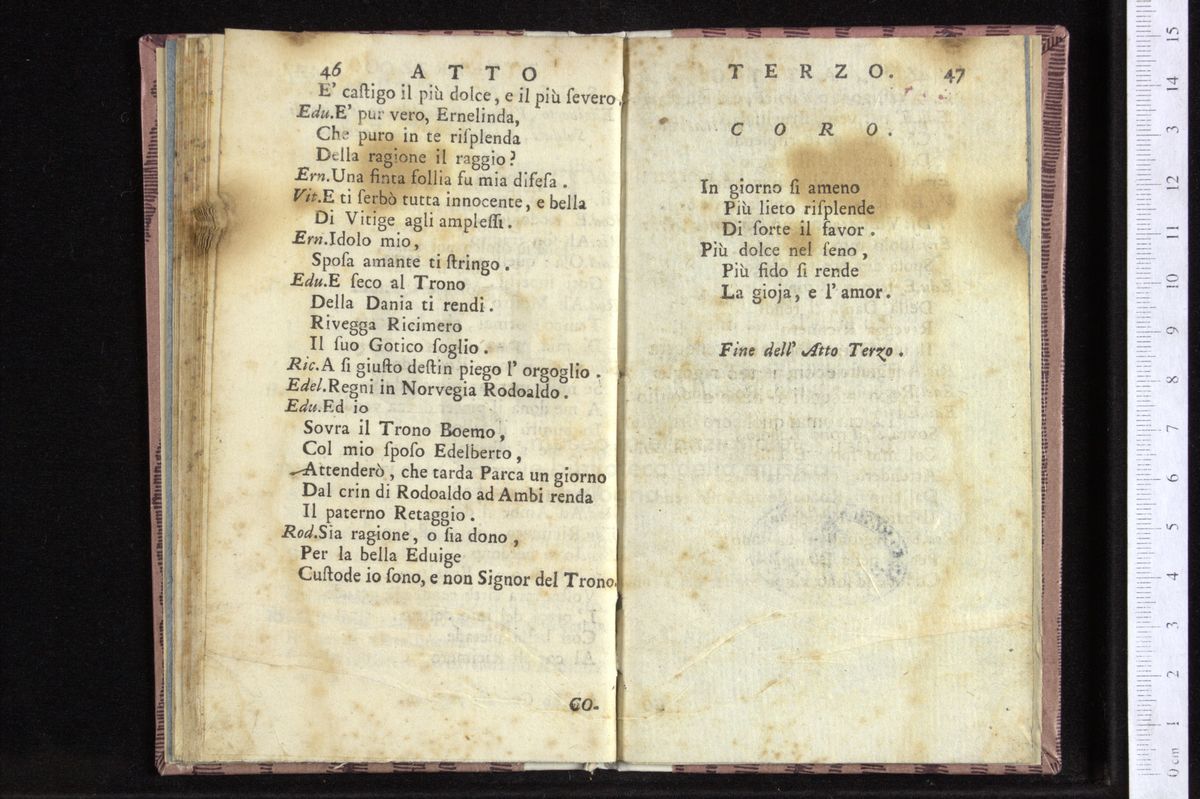 46 ATTO
E' caſtigo il più dolce, e il più ſevero.
Edu.E' pur vero, Ernelinda,
Che puro in te riſplenda
Della ragione il raggio?
Ern.Una finta follia fu mia difeſa.
Vit.E ti ſerbò tutta innocente, e bella
Di Vitige agli ampleſſi.
Ern.Idolo mio,
Spoſa amante ti ſtringo.
Edu.E ſeco al Trono
Della Dania ti rendi.
Rivegga Ricimero
Il ſuo Gotico ſoglio.
Ric.A ſi giuſto deſtin piego l'orgoglio.
Edel.Regni in Norvegia Rodoaldo.
Edu.Ed io
Sovra il Trono Boemo,
Col mio ſpoſo Edelberto,
Attenderò, che tarda Parca un giorno
Dal crin di Rodoaldo ad Ambi renda
Il paterno Retaggio.
Rod.Sia ragione, o ſia dono,
Per la bella Eduige
Cuſtode io ſono, e non Signor del Trono.
CO-
TERZO. 47
CORO.
In giorno ſi ameno
Più lieto riſplende
Di ſorte il favor.
Più dolce nel ſeno,
Più fido ſi rende
La gioja, e l'amor.
Fine dell' Atto Terzo.
0 cm 1 2 3 4 5 6 7 8 9 10 11 12 13 14 15